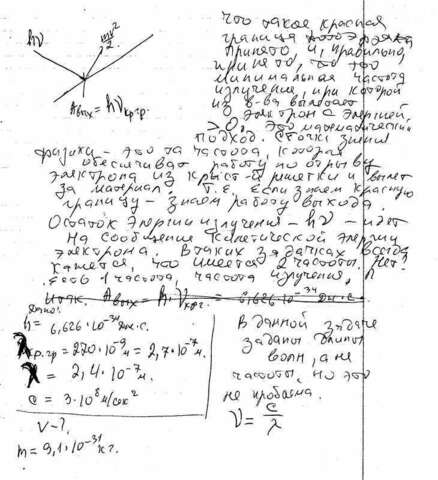 что такое красная
граница
Принято, и, правильно,
принято, что это
минимальная частота
излучения, при которой
из в-ва вылетает
электрон с энергией
> 0. Это математический
подход. С точки зрения
физики - это та частота, которая
обеспечивает работу по отрыву
электрона из крист-й решетки и вылет
за материал. Т.е. если знаем красную
границу - знаем работу выхода.
Остаток энергии излучения - hν - идет
на сообщение кинетической энергии
электрона. В таких задачах всегда
кажется, что имеется 2 частоты. Нет!
Есть 1 частота, частота излучения,
Итак. Aвых = h·νкр.г. = 6,626·10⁻³⁴ Дж·с.
hν
mv²/2
Aвых = hνкр.гр.
Дано:
h = 6,626·10⁻³⁴ Дж.с.
λкр.гр = 270·10⁻⁹м = 2,7·10⁻⁷м.
λ = 2,4·10⁻⁷м.
c = 3·10⁸ м/сек
V - ?
m = 9,1·10⁻³¹ кг.
В данной задаче
заданы длины
волн, а не
частоты, но это
не проблема.
ν = c/λ